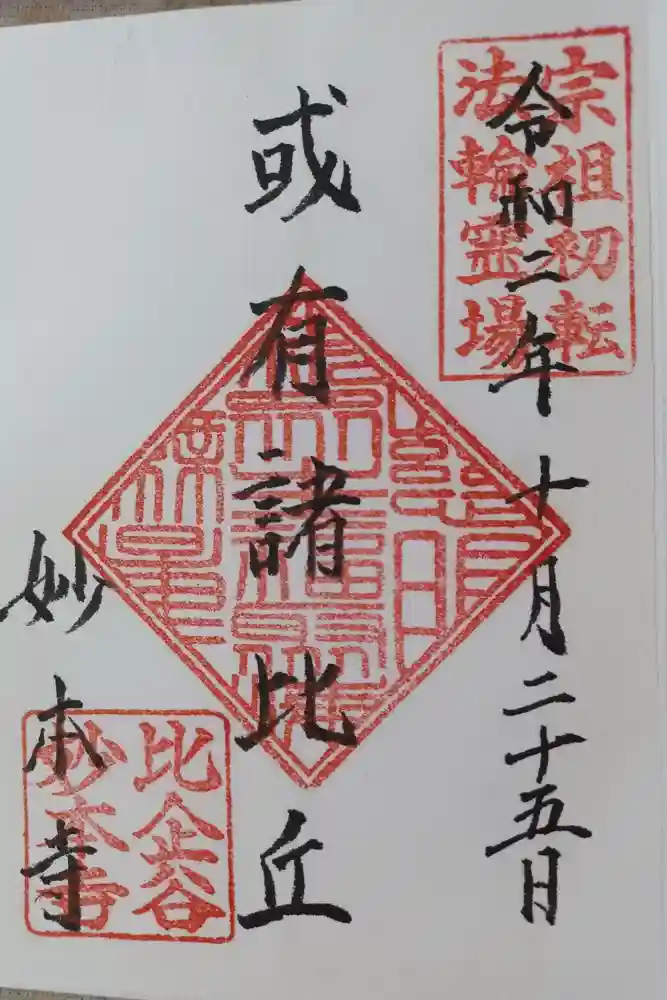 宗祖初転
法輪霊場
令和二年十月二十五日
或有諸比丘
妙本寺
比企谷
妙本寺